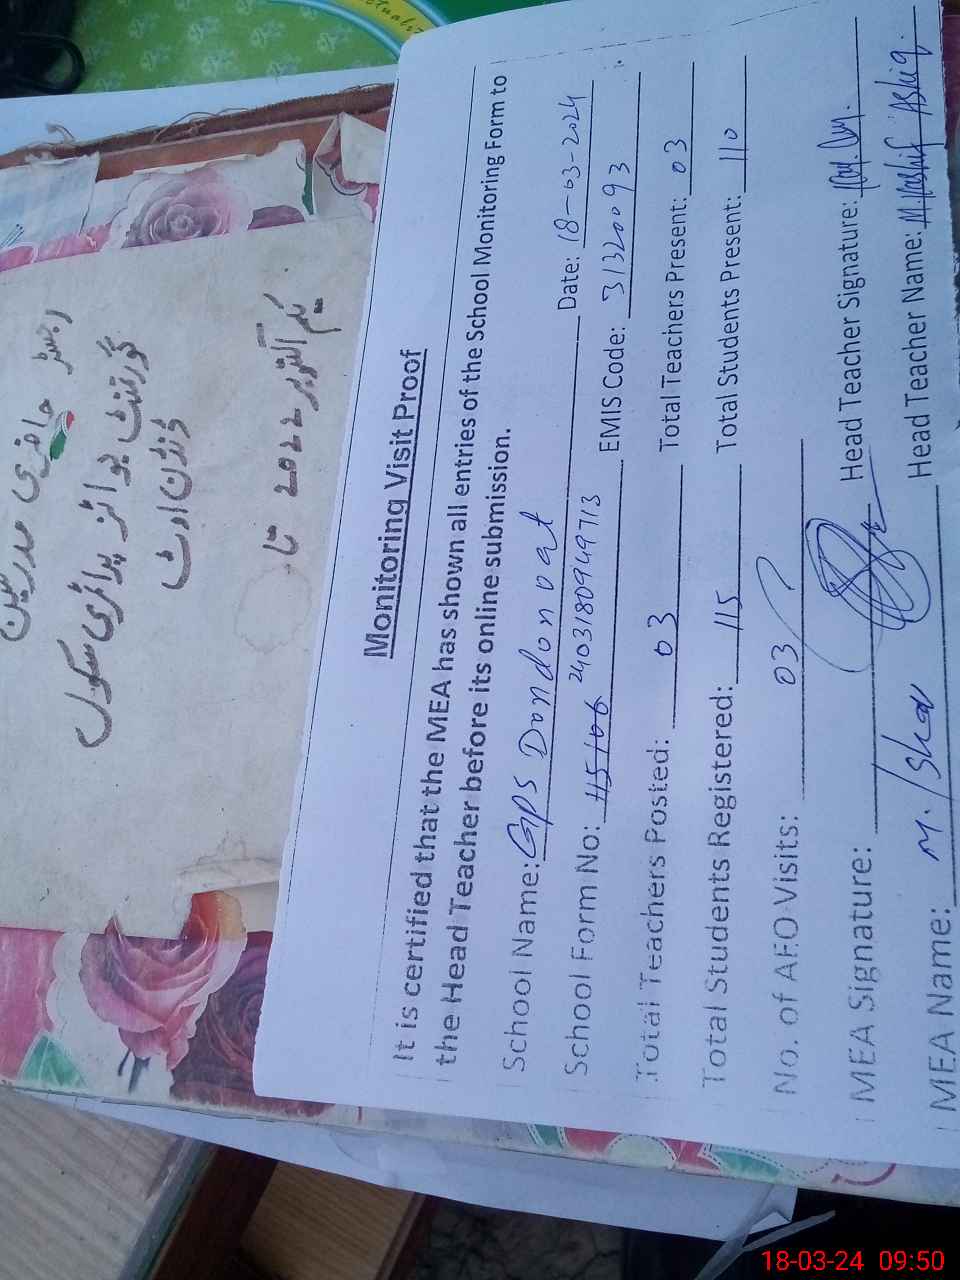 رجسٹر حاضری مدرسین
گورنمنٹ بوائز پرائمری سکول
ڈنڈن اوٹ
یکم اکتوبر 2022 تا
Monitoring Visit Proof
It is certified that the MEA has shown all entries of the School Monitoring Form to
the Head Teacher before its online submission.
School Name: GPS Dandon oat Date: 18-03-2024
School Form No: 2403180949713 EMIS Code: 31320093
Total Teachers Posted: 03 Total Teachers Present: 03
Total Students Registered: 115 Total Students Present: 110
No. of AEO Visits: 03
MEA Signature: Head Teacher Signature:
MEA Name: M. Head Teacher Name: M. Kashif Ashiq.
18-03-24 09:50